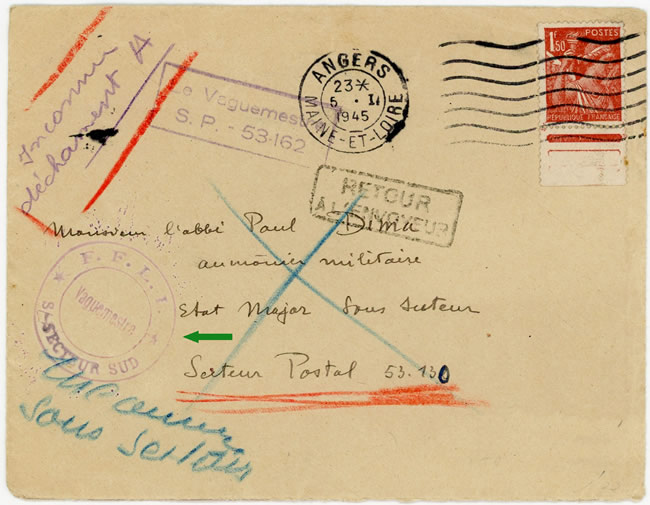 Inconnu
détachement A
Le Vaguemestre
S.P. - 53·162
ANGERS
23*
5 · II
1945
MAINE-ET-LOIRE
1.50
POSTES
RÉPUBLIQUE FRANÇAISE
RETOUR
A L'ENVOYEUR
Monsieur l'abbé Paul Dima
aumônier militaire
Etat Major Sous Secteur
Secteur Postal 53.130
* F. F. L. I. *
Vaguemestre
S-SECTEUR SUD
Inconnu
Sous Secteur